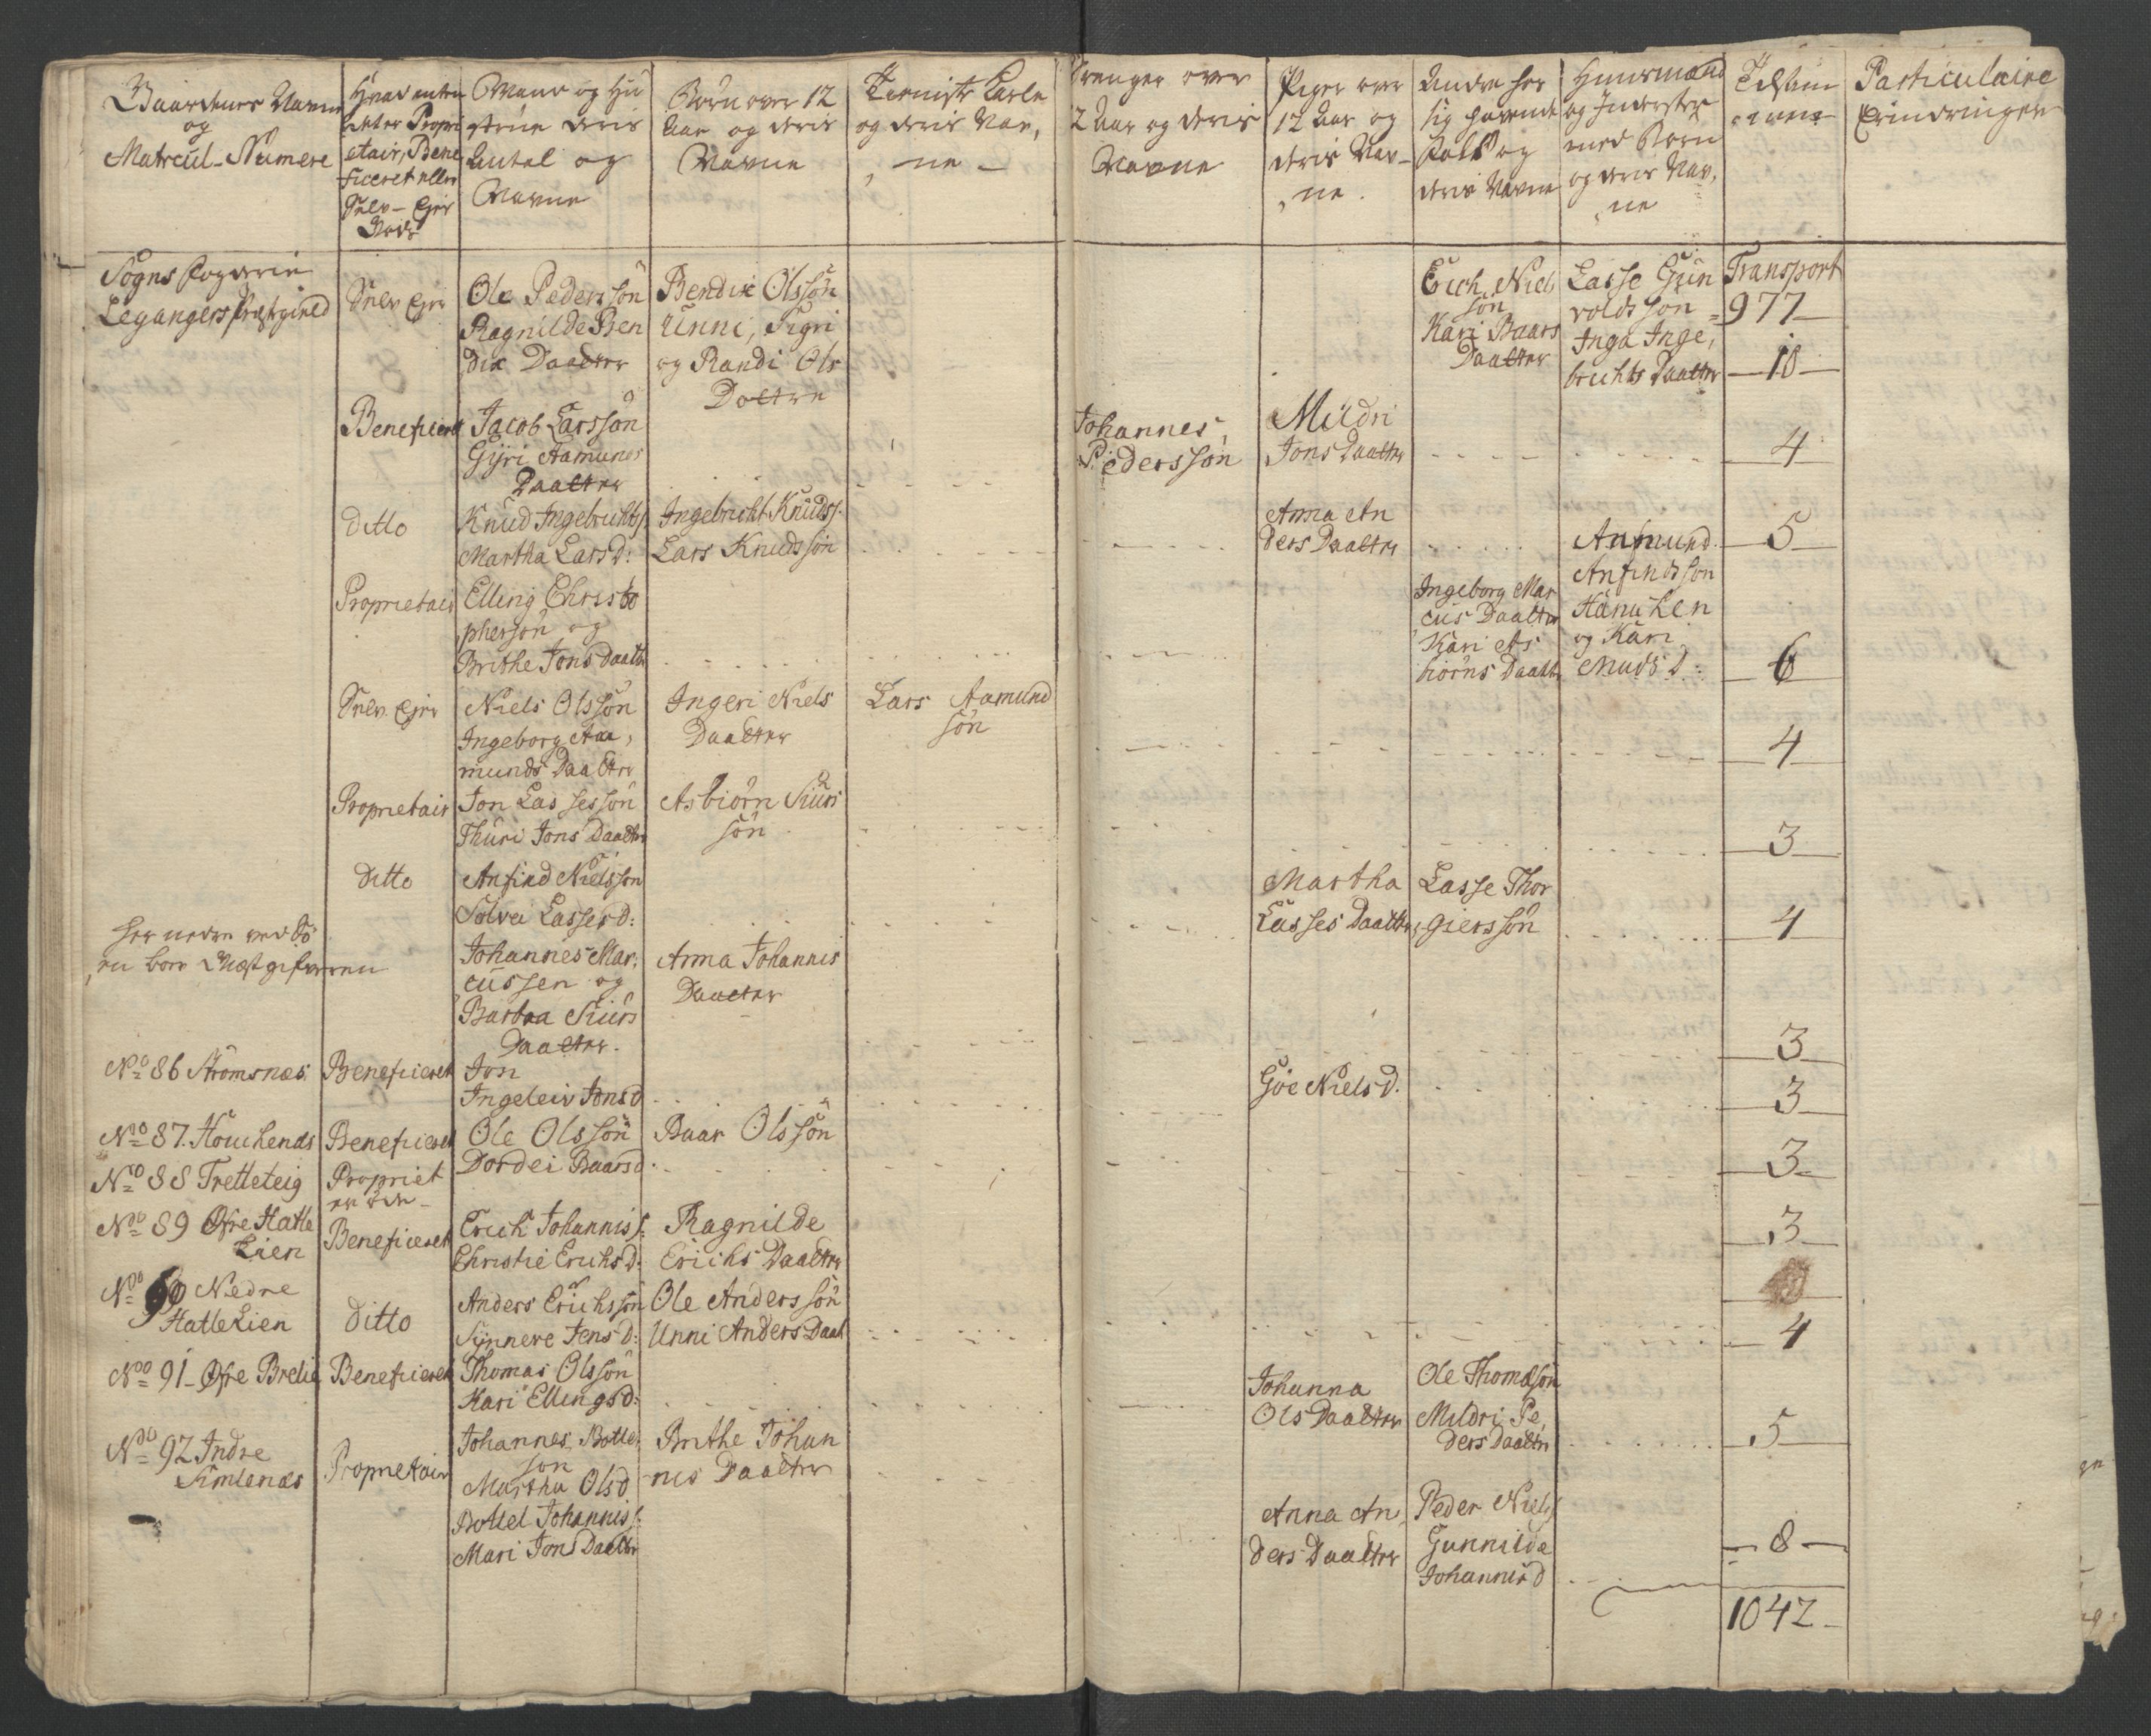 Gaardenes Navne
og
Matrcul-Numere
Hvad enten
det er Propri
etair, Bene
ficeret eller
Selv-Ejer
Gods
Mand og Hu
strue deris
Antal og
Navne
Børn over 12
Aar og deris
Navne
Tieniste Karle
og deris Nav,
,ne -
Drenger over
12 Aar og deris
Navne
Piger over
12 Aar og
deris Nav-
,ne.
Andre hos
sig havende
Folk og
deris Navne
Huusmænd
og Inderster
med Børn
og deris Nav,
,ne
Tilsam
,mens
Particulaire
Erindringer
Sogns Fogderie
Legangers Præstegield
Selv Ejer
Ole Pedersøn
Ragnilde Ben
dix Daatter
Bendix Olssøn
Unni, Sigri
og Randi Ols
Døttre
Erich Niels
søn
Kari Baars
Daatter
Lasse Gun
voldssøn =
Inga Inge,
brichts Daatter
Transport
977
10
Beneficeret
Jacob Larssøn
Gyri Aamunds
Daatter
Johannes
Pederssøn
Mildri
Jons Daatter
4
Ditto
Knud Ingebrichts.
Martha Larsd:
Ingebricht Knuds.
Lars Knudssøn
Anna An
ders Daatter
5
Proprietair
Elling Christo
phersøn og
Brithe Jons Daatter
Ingeborg Mar
cus Daatter
Kari As
biørns Daatter
Anmund
Anfindssøn
og Kari
Madsd:
6
Selv Ejer
Niels Olssøn
Ingeborg Aa,
munds Daatter
Ingeri Niels
Daatter
Lars Aamund
søn
4
Proprietair
Jon Lassessøn
Thuri Jons Daatter
Asbiørn Siurs
søn
3
Ditto
Anfind Nielssøn
Solvei Lassesd:
Martha
Lasses Daatter
Lasse Thor
gierssøn
4
her neden ved Sø
en boer Giestgifveren
Johannes Mar,
cussen og
Barbra Siurs
Daatter.
Anna Johannis
Daatter
3
No 86 Strømsnæs
Beneficeret
Jon
Ingeleiv Jonsd
Goe Nielsd.
3
No 87. Houchenæs
Beneficeret
Ole Olssøn
Dordei Baarsd
Baar Olssøn
3
No 88 Tretteteig
Propriet
er øde -
No 89 Øfre Hatle
Lien
Beneficeret
Erich Johannis.
Christie Erichsd:
Ragnilde
Erichs Daatter
3
No 90 Nedre
HatleLien
Ditto
Anders Erichssøn
Synneve Jensd:
Ole Anderssøn
Unni Anders Daat
4
No 91 - Øfre Brelie
Beneficeret
Thomas Olssøn
Kari Ellingsd:
Johanna
Ols Daatter
Ole Thomæsøn
Mildri Pe,
ders Daatter
5
No 92 Indre
Simlenæs
Proprietair
Johannes Botle,
søn
Martha Olsd
Bottel Johannis.
Mari Jons Daatter
Brithe Johan
nis Daatter
Anna An,
ders Daatter
Peder Niels.
Gunnilde
Johannisd
8
1042